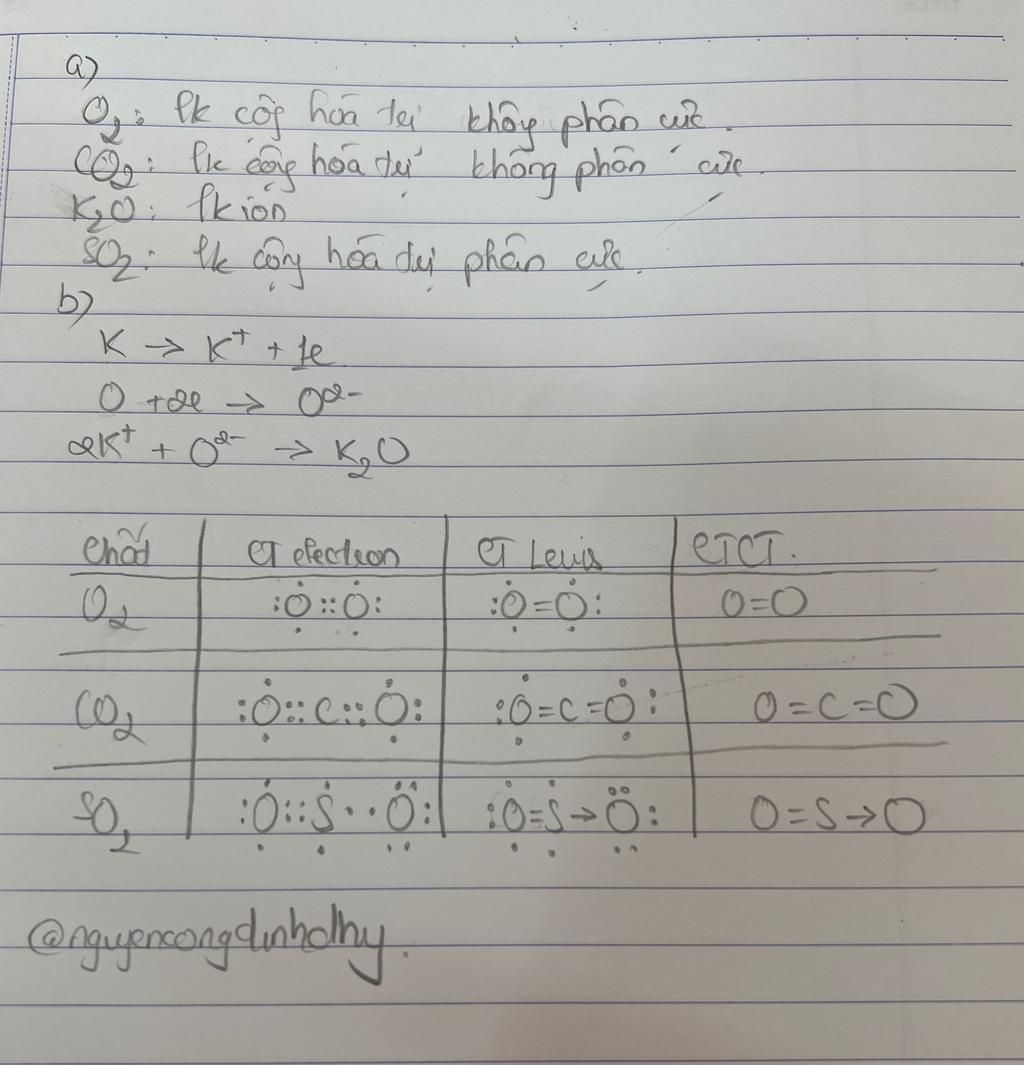 a)
O₂: lk cộng hóa trị không phân cực.
CO₂: lk cộng hóa trị không phân cực.
K₂O: lk ion
SO₂: lk cộng hóa trị phân cực.
b)
K → K⁺ + 1e
O + 2e → O²⁻
2K⁺ + O²⁻ → K₂O
Chất | CT electron | CT Lewis | CTCT.
O₂ | :Ọ̇::Ọ̇: | :Ọ̇=Ọ̇: | O=O
CO₂ | :Ọ̇::C::Ọ̇: | :Ọ̇=C=Ọ̇: | O=C=O
SO₂ | :Ọ̇::Ṩ··Ö̤: | :Ọ̇=Ṩ→Ö̤: | O=S→O
@nguyencongdinhdhy.